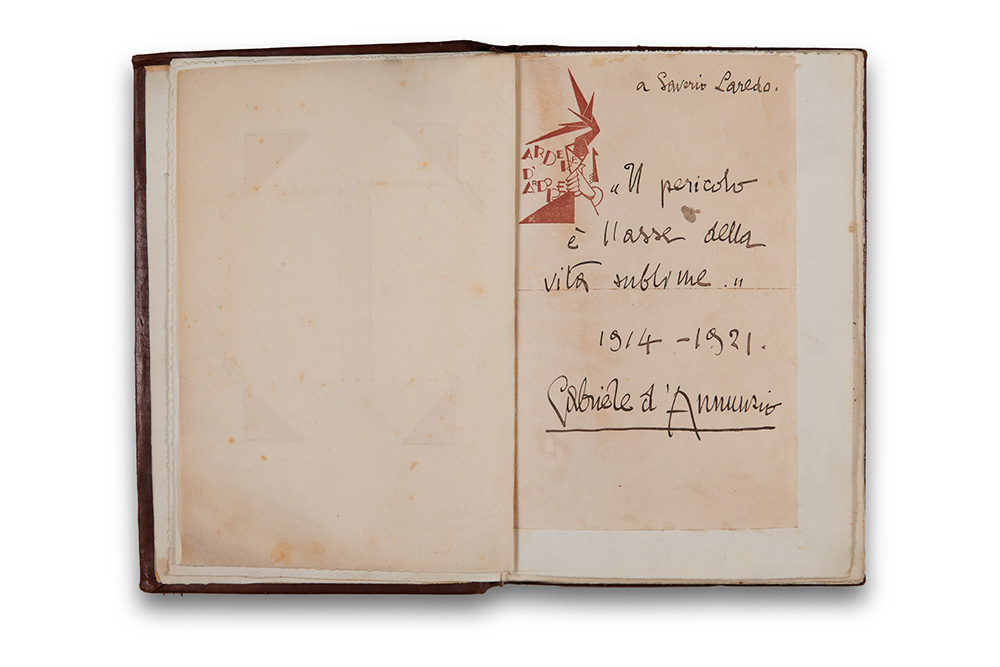 a Saverio Laredo.
ARDERE
D'
ARDORE
« Il pericolo
è l'asse della
vita sublime. »
1914 - 1921.
Gabriele d'Annunzio